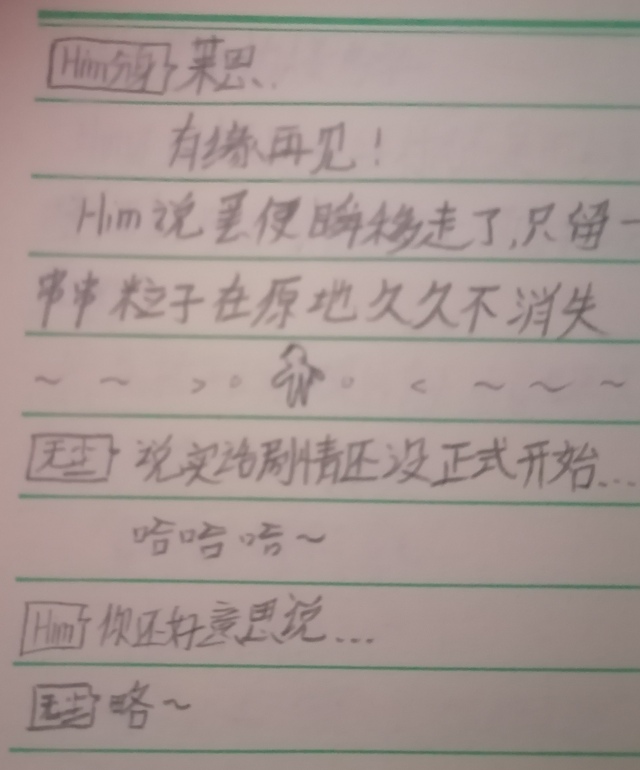 Him分身 莱恩.
有缘再见！
Him说罢便瞬移走了,只留一
串串粒子在原地久久不消失
~ ~ > 。 。 < ~ ~ ~
无尘 说实话剧情还没正式开始...
哈哈哈~
Him 你还好意思说...
无尘 略~